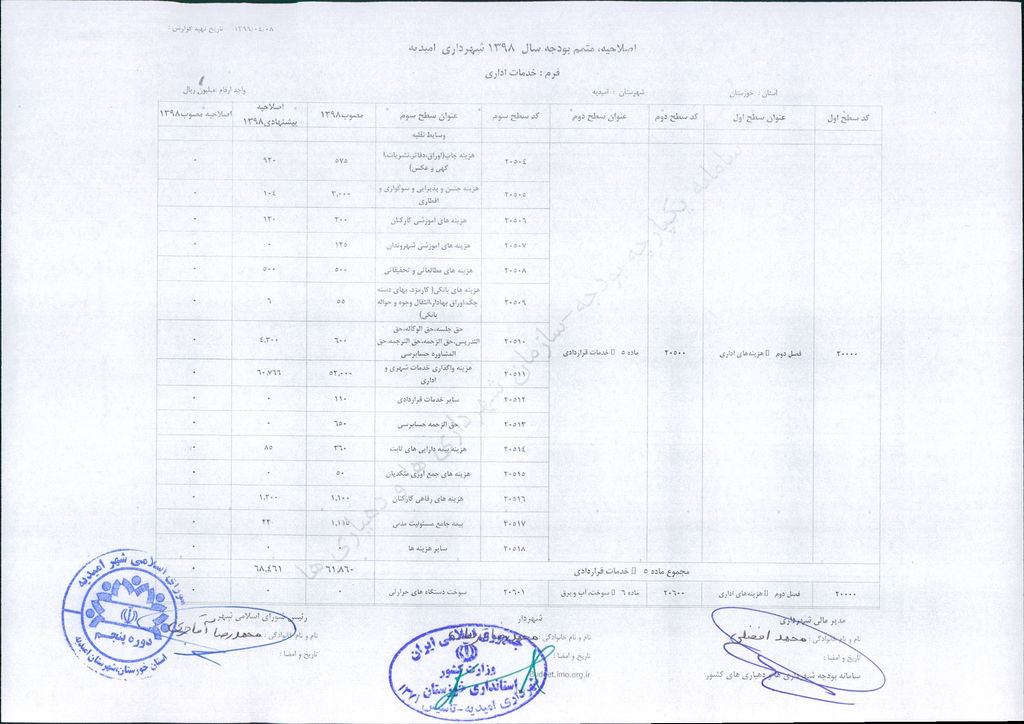 تاریخ تهیه گزارش : ۱۳۹۹/۰۴/۰۸
اصلاحیه، متمم بودجه سال ۱۳۹۸ شهرداری امیدیه
فرم : خدمات اداری
استان : خوزستان شهرستان : امیدیه واحد ارقام :میلیون ریال
کد سطح اول عنوان سطح اول کد سطح دوم عنوان سطح دوم کد سطح سوم عنوان سطح سوم مصوب۱۳۹۸ اصلاحیه پیشنهادی۱۳۹۸ اصلاحیه مصوب۱۳۹۸
وسایط نقلیه
۲۰۵۰۴ هزینه چاپ(اوراق،دفاتر،نشریات،ا ۵۷۵ ۹۲۰ ۰
گهی و عکس)
۲۰۵۰۵ هزینه جشن و پذیرایی و سوگواری و ۳,۰۰۰ ۱۰۴ ۰
افطاری
۲۰۵۰۶ هزینه های اموزشی کارکنان ۳۰۰ ۱۳۰ ۰
۲۰۵۰۷ هزینه های اموزشی شهروندان ۱۲۵ ۰ ۰
۲۰۵۰۸ هزینه های مطالعاتی و تحقیقاتی ۵۰۰ ۵۰۰ ۰
۲۰۵۰۹ هزینه های بانکی( کارمزد، بهای دسته ۵۵ ۶ ۰
چک،اوراق بهادار،انتقال وجوه و حواله
بانکی)
۲۰۰۰۰ فصل دوم هزینه‌های اداری ۲۰۵۰۰ ماده ۵ خدمات قراردادی
۲۰۵۱۰ حق جلسه،حق الوکاله،حق ۶۰۰ ۴,۳۰۰ ۰
التدریس،حق الزحمه،حق الترجمه،حق
المشاوره حسابرسی
۲۰۵۱۱ هزینه واگذاری خدمات شهری و ۵۲,۰۰۰ ۶۰,۷۶۶ ۰
اداری
۲۰۵۱۲ سایر خدمات قراردادی ۱۱۰ ۰ ۰
۲۰۵۱۳ حق الزحمه حسابرسی ۶۵۰ ۰ ۰
۲۰۵۱۴ هزینه بیمه دارایی های ثابت ۳۶۰ ۸۵ ۰
۲۰۵۱۵ هزینه های جمع آوری متکدیان ۵۰ ۰ ۰
۲۰۵۱۶ هزینه های رفاهی کارکنان ۱,۱۰۰ ۱,۲۰۰ ۰
۲۰۵۱۷ بیمه جامع مسئولیت مدنی ۱,۱۱۵ ۲۲۰ ۰
۲۰۵۱۸ سایر هزینه ها ۰ ۰
مجموع ماده ۵ خدمات قراردادی ۶۱,۸۶۰ ۶۸,۴۶۱ ۰
۲۰۰۰۰ فصل دوم هزینه‌های اداری ۲۰۶۰۰ ماده ۶ سوخت، آب و برق ۲۰۶۰۱ سوخت دستگاه های حرارتی ۰ ۰ ۰
سامانه یکپارچه بودجه-سازمان شهرداری ها و دهیاری ها
مدیر مالی شهرداری شهردار رئیس شورای اسلامی شهر
نام و نام خانوادگی : محمد افضلی نام و نام خانوادگی : نام و نام خانوادگی : محمدرضا
تاریخ و امضا : تاریخ و امضا : تاریخ و امضا :
سامانه بودجه شهرداری ها و دهیاری های کشور
budget.imo.org.ir
جمهوری اسلامی ایران
وزارت کشور
استانداری خوزستان
شهرداری امیدیه-تأسیس ۱۳۷۱
شورای اسلامی شهر امیدیه
دوره پنجم
استان خوزستان،شهرستان امیدیه